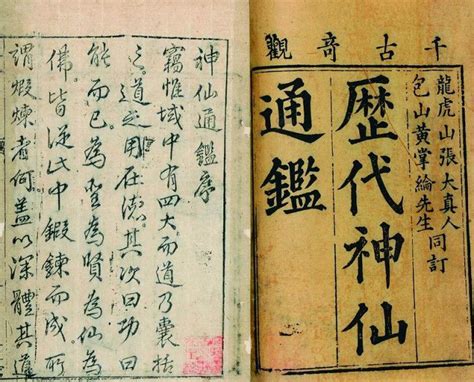 千古奇觀
龍虎山張大真人
包山黃掌綸先生
同訂
歴代神仙
通鑑
神仙通鑑序
竊惟域中有四大而道乃囊括
之道之用在德其次曰功曰
能而已為聖為賢為仙為
佛皆從此中鍛鍊而成所
謂煅煉者何盖以深體其道